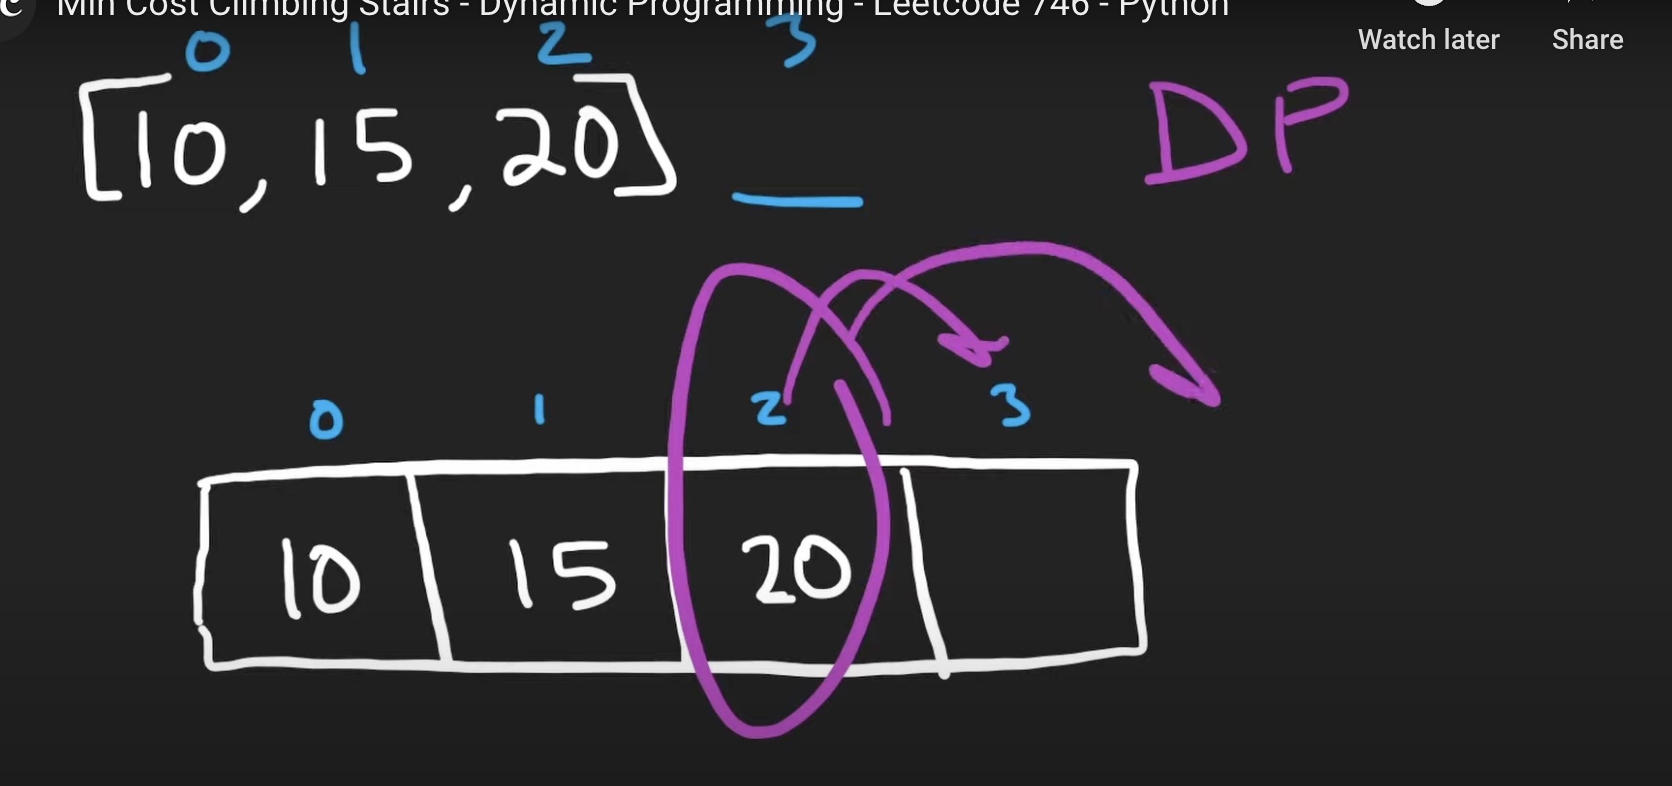 Min Cost Climbing Stairs - Dynamic Programming - Leetcode 746 - Python
Watch later Share
0 1 2 3
[10, 15, 20]
DP
0 1 2 3
10 15 20